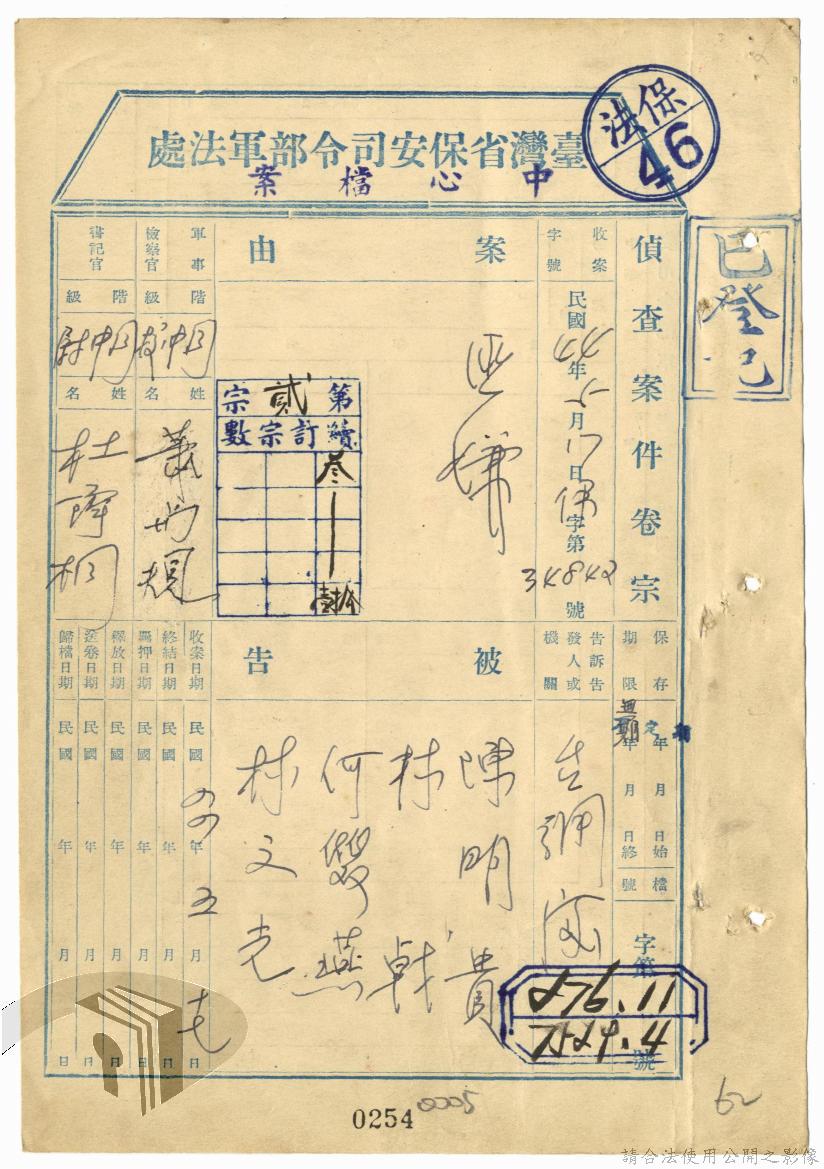 保法
46
臺灣省保安司令部軍法處
中心檔案
已登記
偵查案件卷宗
收案字號
民國44年5月17日偵字第34842號
案由
匪嫌
第貳宗
續訂宗數
叁
壹拾
軍事檢察官
階級
同中校
姓名
書記官
階級
同中尉
姓名
杜
桐
保存期限
年 月 日始
年 月 日終
檔號
字第
號
276.11
7529.4
告訴告發人或機關
被告
陳明貴
林戟
何燕
林文
收案日期 民國四四年五月十七日
終結日期 民國 年 月 日
羈押日期 民國 年 月 日
釋放日期 民國 年 月 日
送卷日期 民國 年 月 日
歸檔日期 民國 年 月 日
0254
0005
62
請合法使用公開之影像